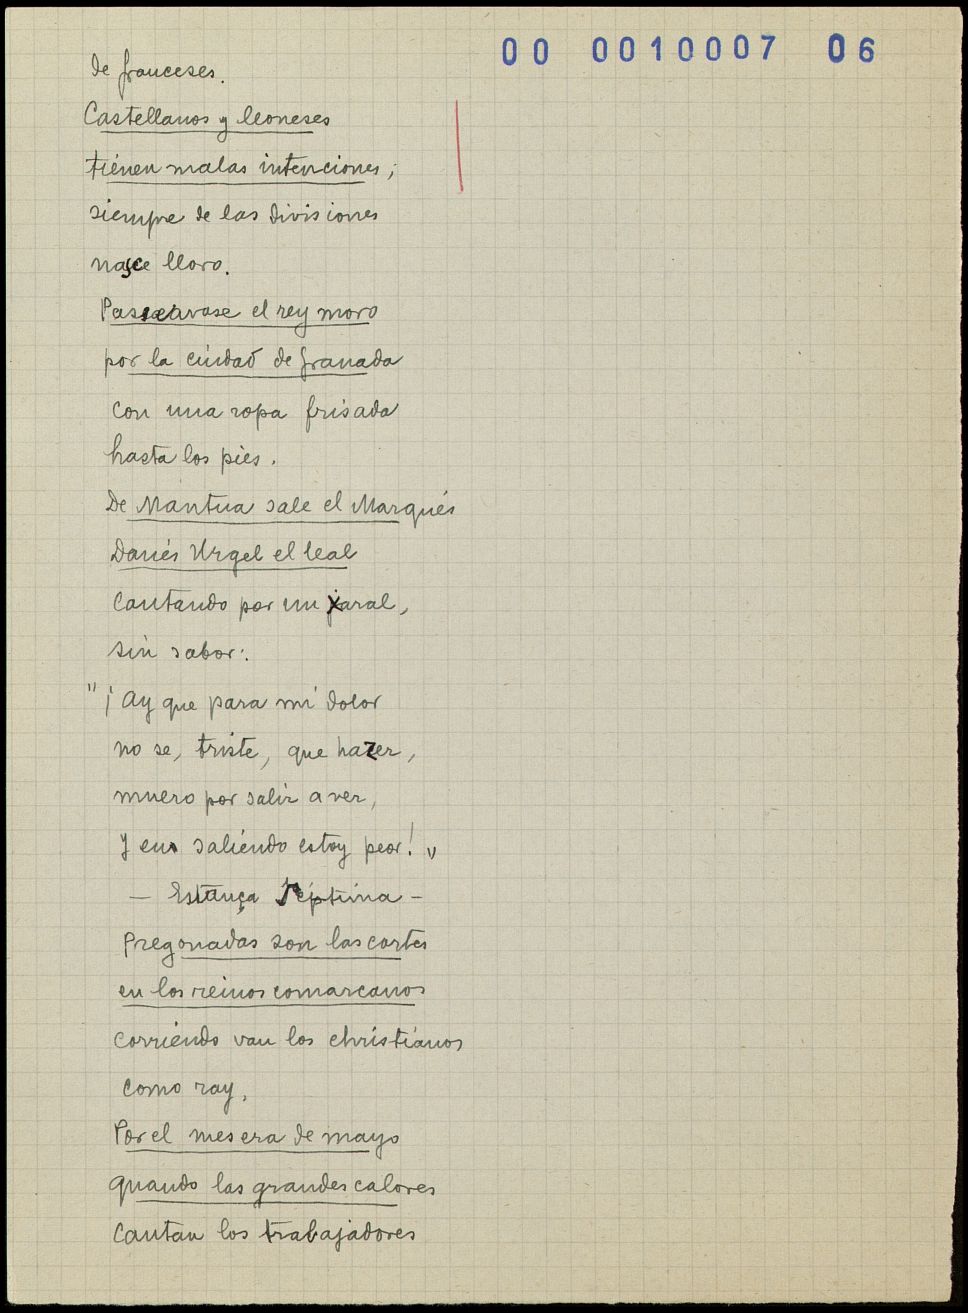 00 0010007 06
de franceses.
Castellanos y leoneses
tienen malas intenciones,
siempre de las divisiones
nasce lloro.
Passeavase el rey moro
por la ciudad de Granada
con una ropa frisada
hasta los pies.
De Mantua sale el Marqués
Danés Urgel el leal
Cantando por un xaral,
sin sabor:
"¡Ay que para mi dolor
no se, triste, que hazer,
muero por salir a ver,
y en saliendo estoy peor!"
— Estança séptima —
Pregonadas son las cortes
en los reinos comarcanos
corriendo van los christianos
como ray,
Por el mes era de mayo
quando las grandes calores
Cantan los trabajadores